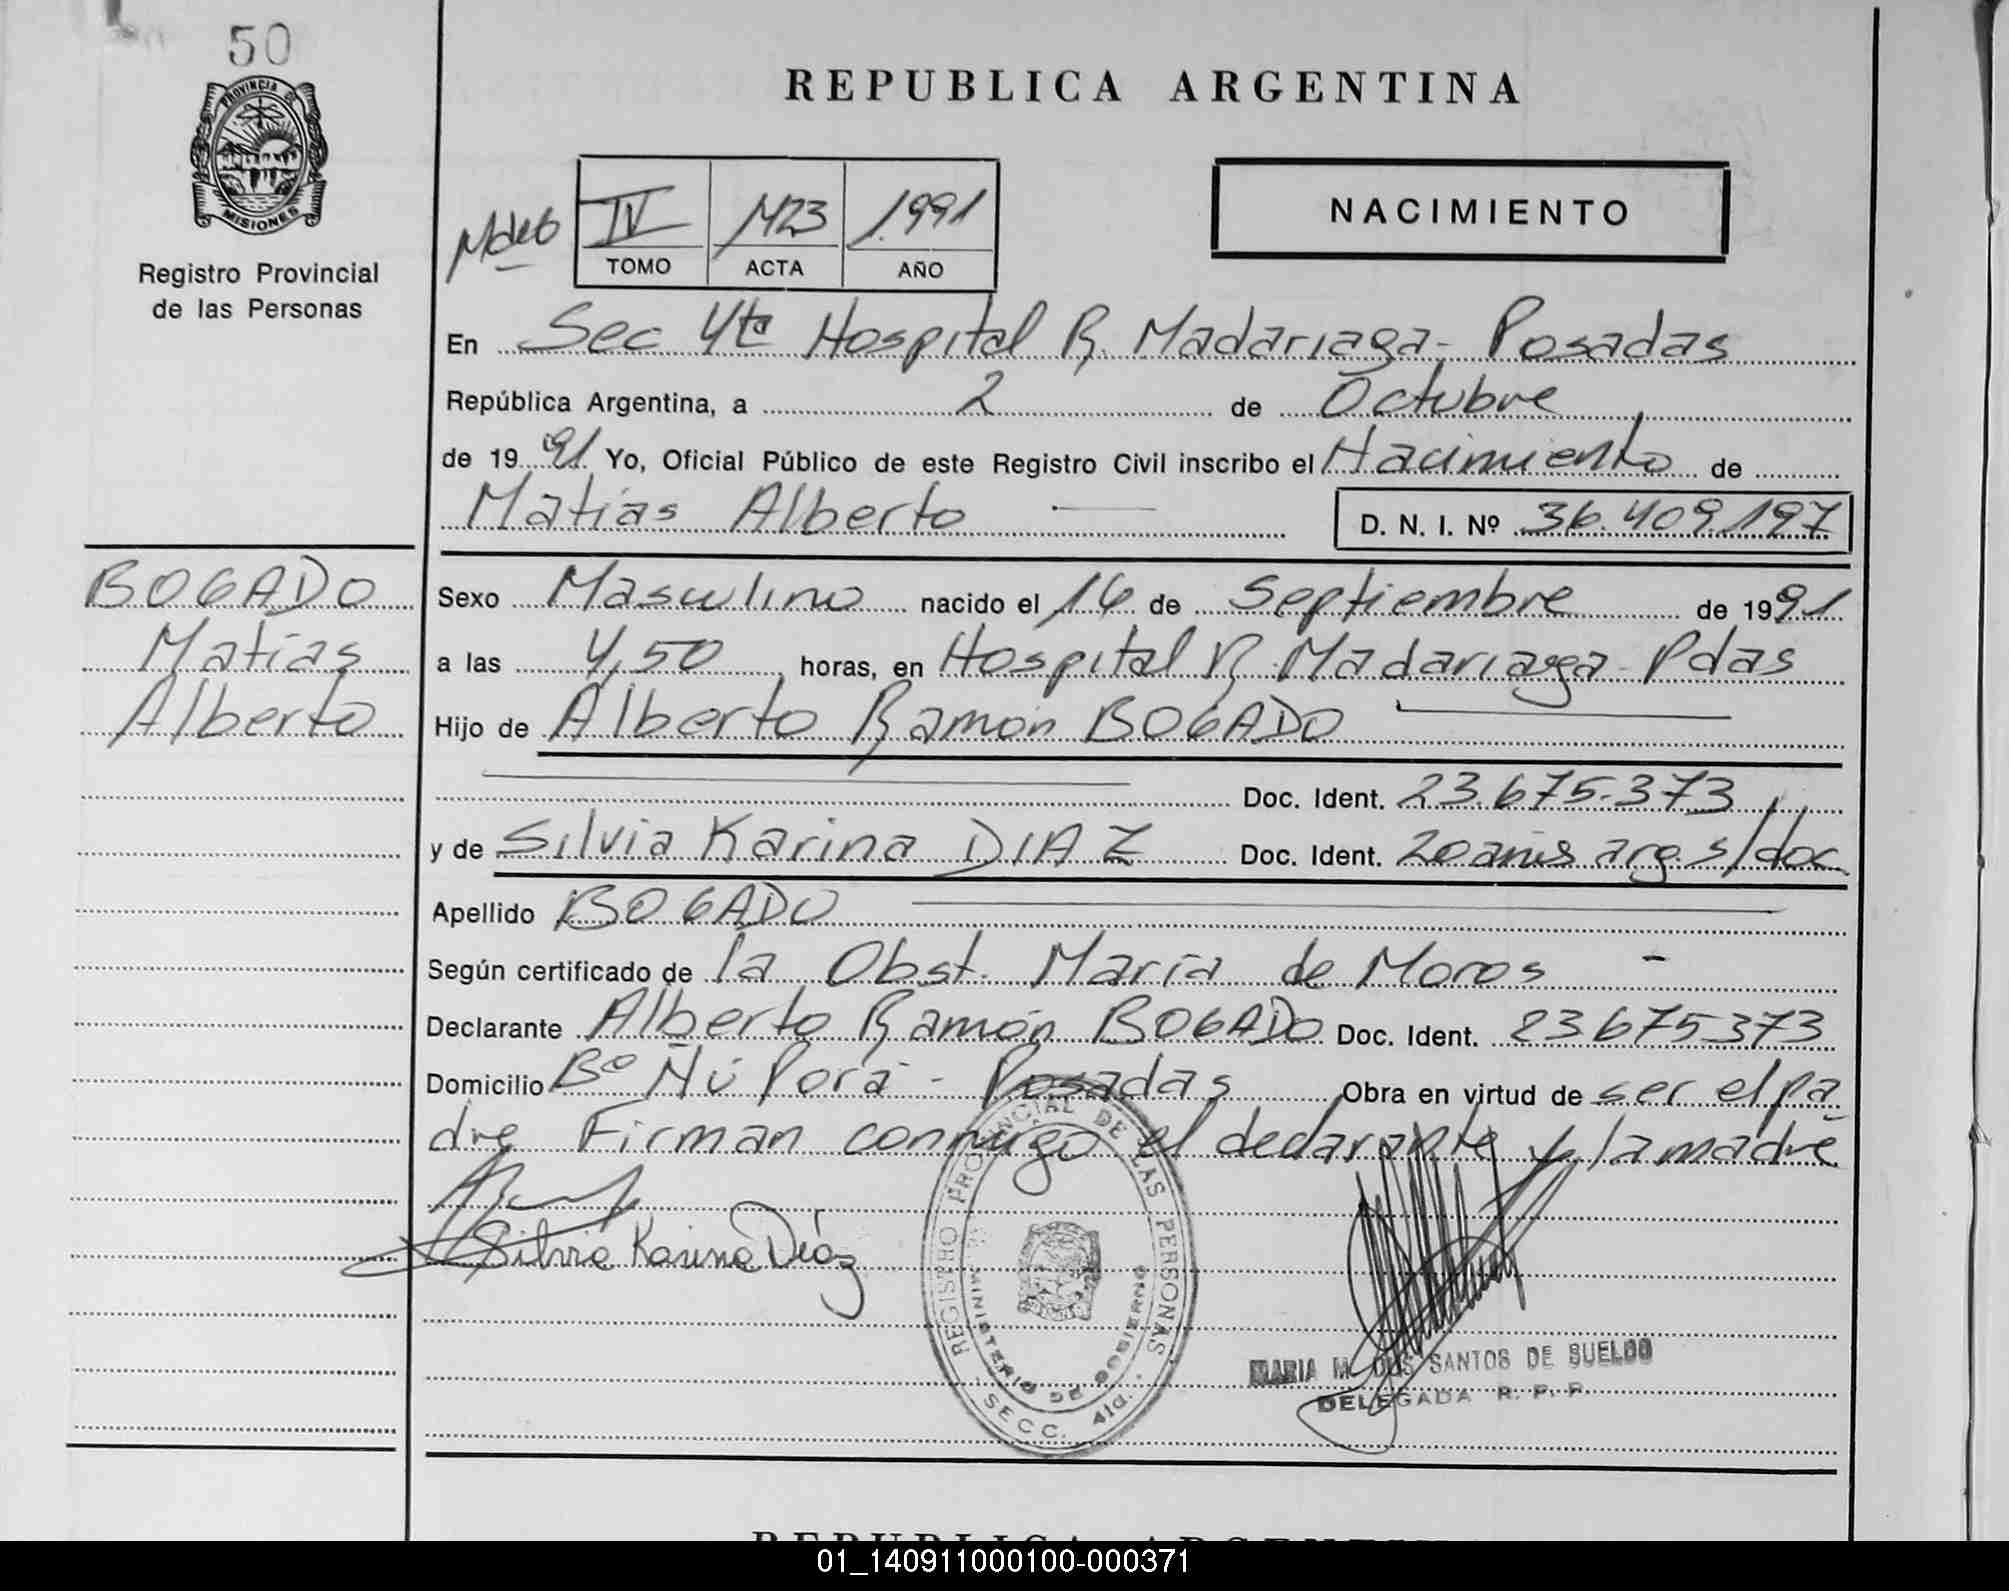 50
PROVINCIA DE
MISIONES
Registro Provincial
de las Personas
REPUBLICA ARGENTINA
IV 1423 1991
TOMO ACTA AÑO
NACIMIENTO
En Sec 4ta Hospital R. Madariaga - Posadas
República Argentina, a 2 de Octubre
de 1991 Yo, Oficial Público de este Registro Civil inscribo el Nacimiento de
Matías Alberto — D. N. I. Nº 36.409.197
BOGADO
Matías
Alberto
Sexo Masculino nacido el 16 de Septiembre de 1991
a las 4,50 horas, en Hospital R. Madariaga - Pdas
Hijo de Alberto Ramón BOGADO
Doc. Ident. 23.675.373
y de Silvia Karina DIAZ Doc. Ident. 20 años arg. s/doc
Apellido BOGADO
Según certificado de la Obst. María de Moros -
Declarante Alberto Ramón BOGADO Doc. Ident. 23675373
Domicilio Bº Ñú Porá - Posadas Obra en virtud de ser el pa
dre Firman conmigo el declarante y la madre
Silvia Karina Díaz
REGISTRO PROVINCIAL DE LAS PERSONAS
MINISTERIO DE GOBIERNO
SECC. 4ta.
MARIA M. DOS SANTOS DE SUELDO
DELEGADA R. P. P.
01_140911000100-000371